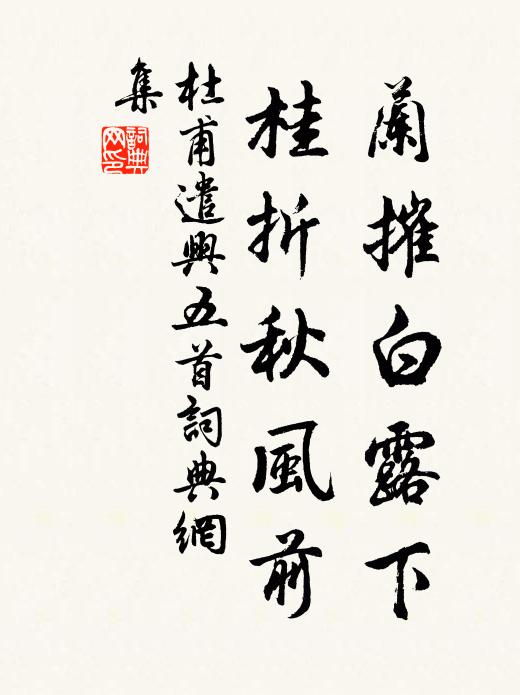 蘭摧白露下
桂折秋風前
杜甫遣興五首詞典網
集
詞典
网印